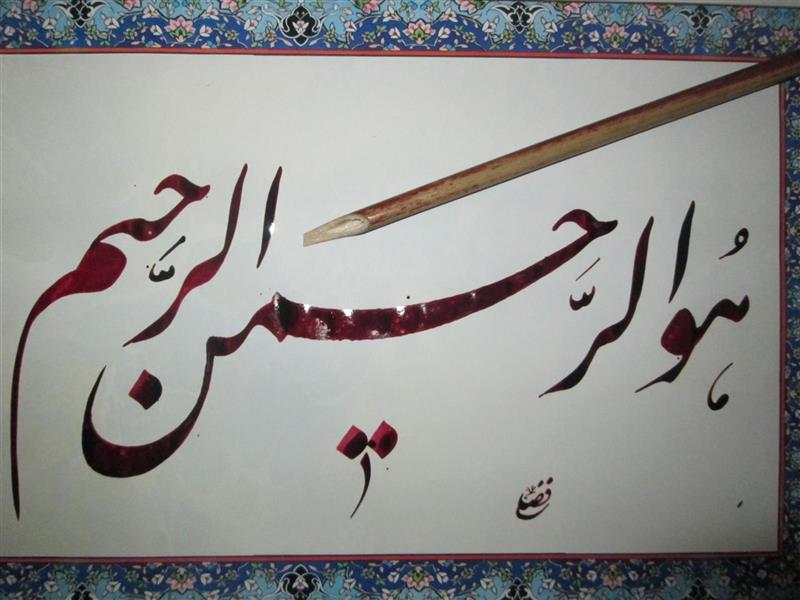 هوالرَّحمن الرَّحیم